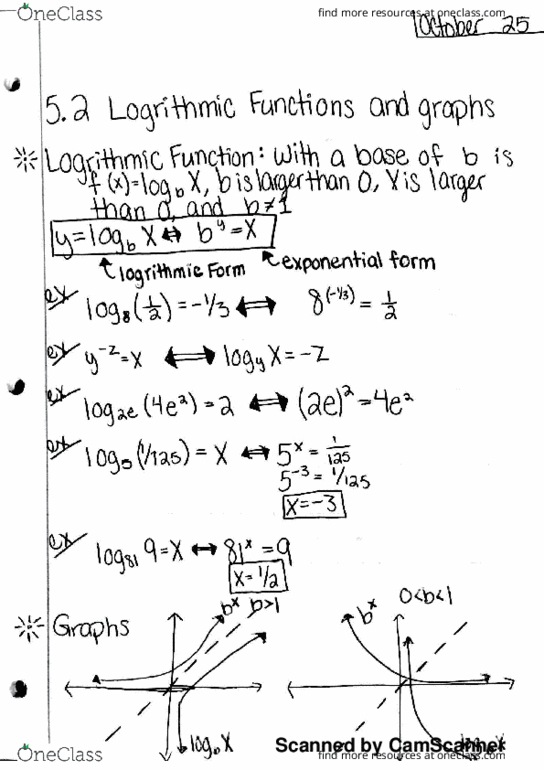 OneClass
find more resources at oneclass.com
October 25
5.2 Logrithmic Functions and graphs
Logrithmic Function: With a base of b is
f(x)=log_b X, b is larger than 0, X is larger
than 0, and b≠1
y=log_b X ⇔ b^y=X
logrithmic form
exponential form
ex log_8(1/2)=-1/3 ⇔ 8^(-1/3)=1/2
ex y^-z=x ⇔ log_y X=-z
ex log_2e(4e²)=2 ⇔ (2e)²=4e²
ex log_5(1/125)=X ⇔ 5^x=1/125
5^-3=1/125
X=-3
ex log_81 9=X ⇔ 81^x=9
X=1/2
Graphs
b^x b>1
b^x 0<b<1
log_b X
Scanned by CamScanner
OneClass
find more resources at oneclass.com